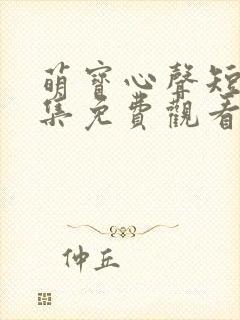 萌寶心聲短
集免費觀看
仲丘